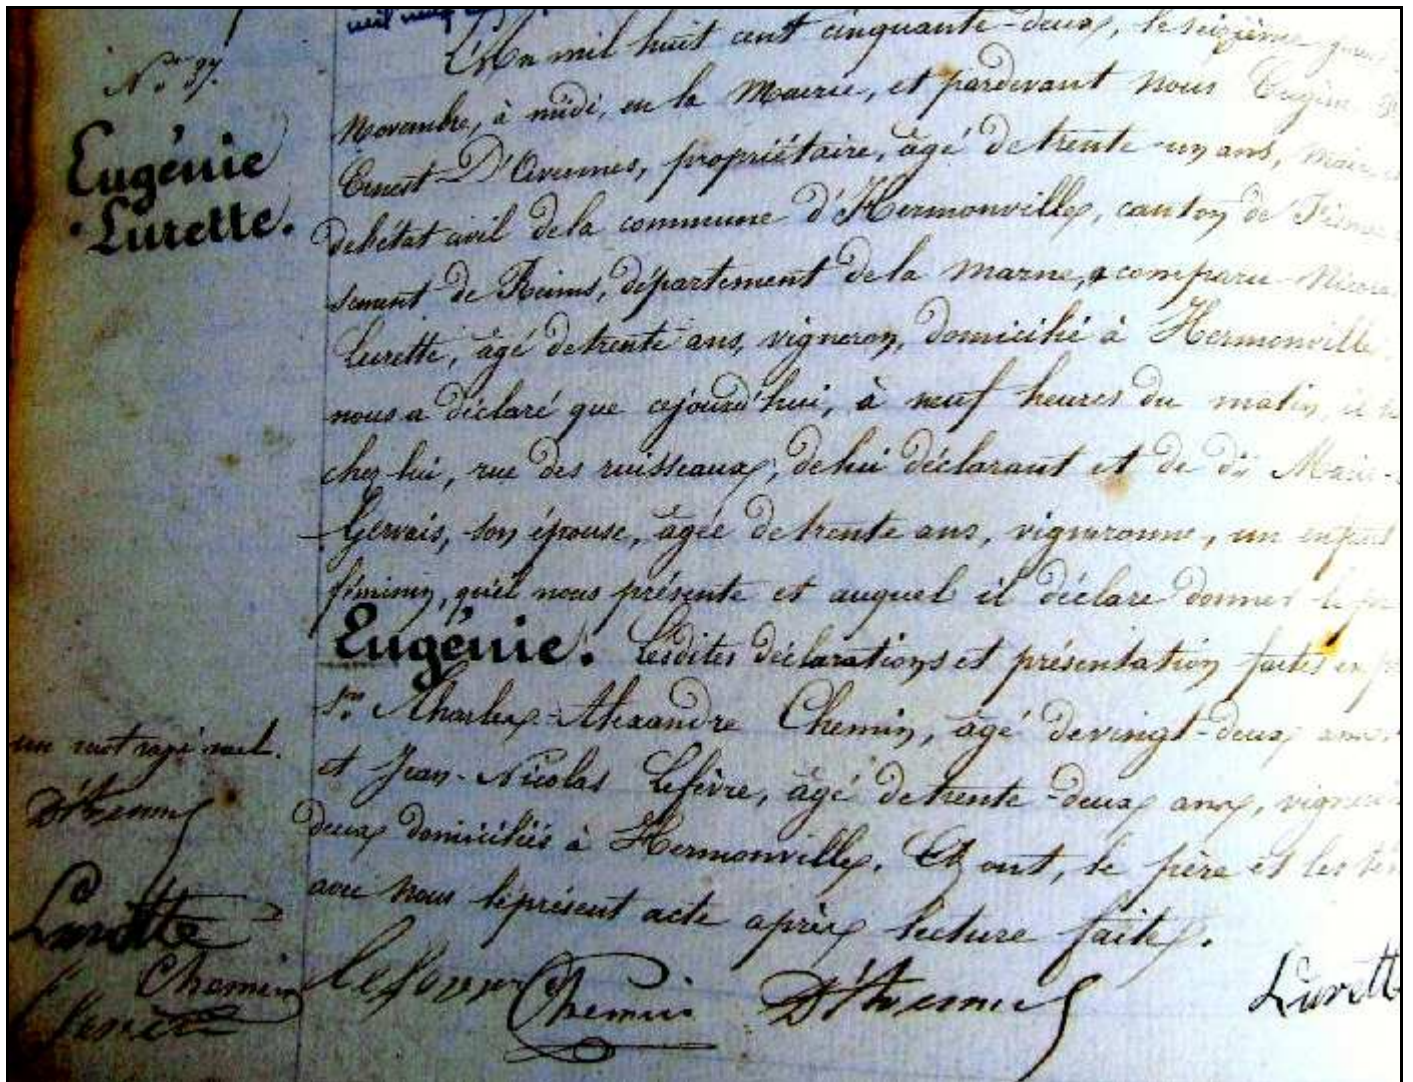 N.° 37.
Eugénie
Lurette.
L'An mil huit cent cinquante-deux, le seizième jour
Novembre, à midi, en la Mairie, et pardevant nous Eugène
Ernest D'Avennes, propriétaire, âgé de trente-un ans, Maire
de l'état civil de la commune d'Hermonville, canton de Fismes
sement de Reims, département de la Marne, a comparu
Lurette, âgé de trente ans, vigneron, domicilié à Hermonville
nous a déclaré que cejourd'hui, à neuf heures du matin, il
chez lui, rue des ruisseaux, de lui déclarant et de Marie-
Gervais, son épouse, âgée de trente ans, vigneronne, un enfant
féminin, qu'il nous présente et auquel il déclare donner
Eugénie. Lesdites déclarations et présentation faites en
Charles-Alexandre Chemin, âgé de vingt-deux ans
et Jean-Nicolas Lefèvre, âgé de trente-deux ans, vigneron
deux domiciliés à Hermonville. Et ont, le père et les
avec nous le présent acte après lecture faite.
un mot rayé nul.
D'Avennes
Lurette
Chemin
Chemin D'Avennes Lurett